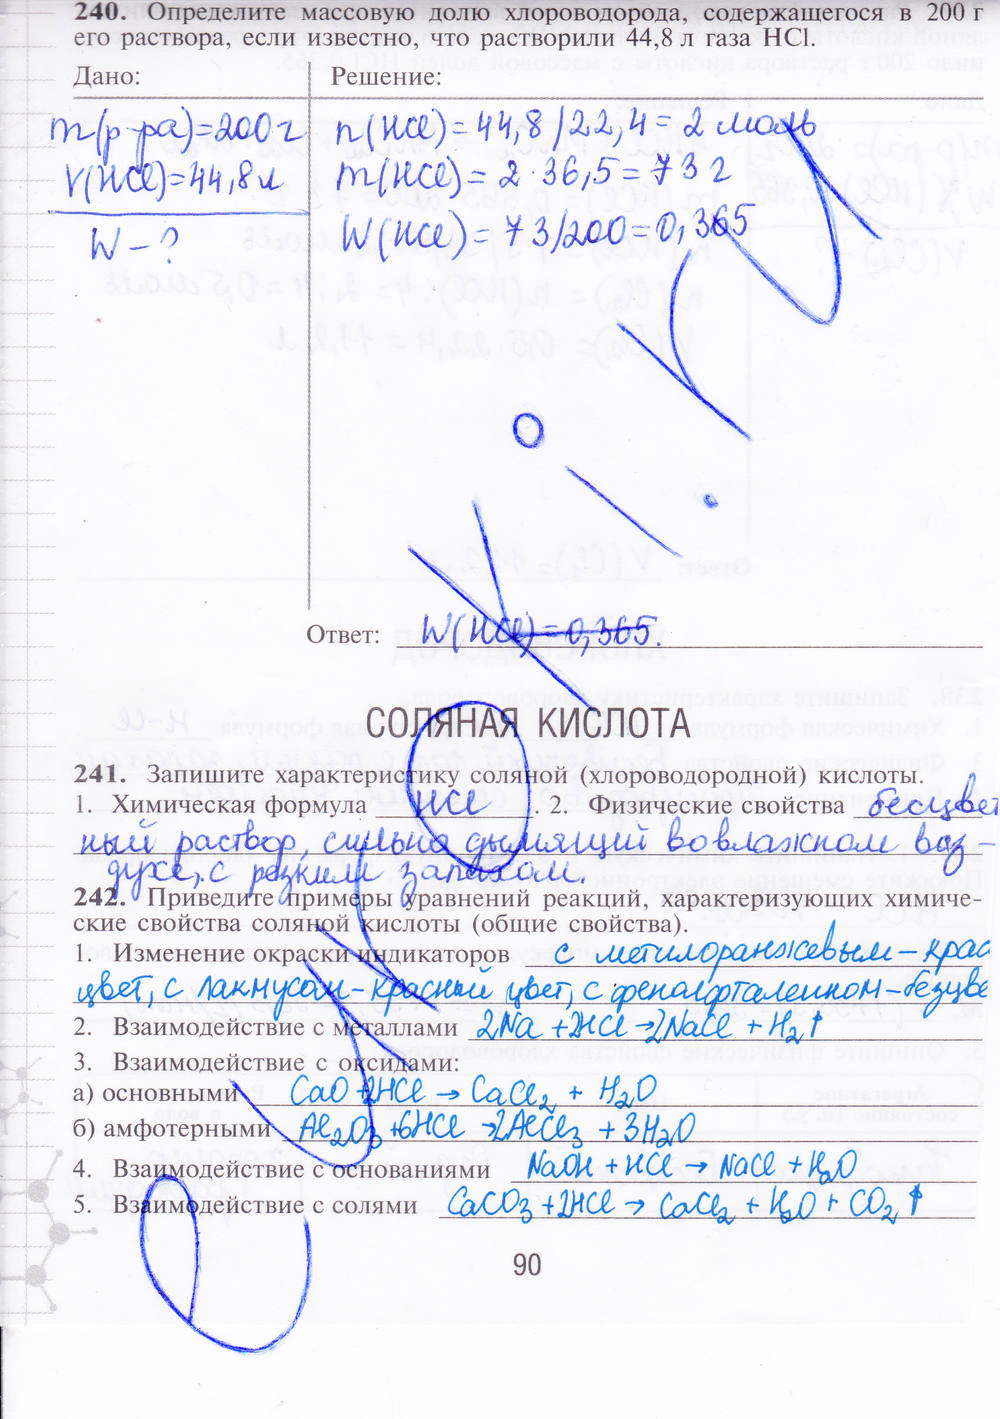 240. Определите массовую долю хлороводорода, содержащегося в 200 г
его раствора, если известно, что растворили 44,8 л газа HCl.
Дано:
Решение:
m(р-ра)=200 г
V(HCl)=44,8 л
W - ?
n(HCl) = 44,8/22,4 = 2 моль
m(HCl) = 2·36,5 = 73 г
W(HCl) = 73/200 = 0,365
Ответ: W(HCl) = 0,365.
СОЛЯНАЯ КИСЛОТА
241. Запишите характеристику соляной (хлороводородной) кислоты.
1. Химическая формула HCl. 2. Физические свойства бесцвет
ный раствор, сильно дымящий во влажном воз-
духе, с резким запахом.
242. Приведите примеры уравнений реакций, характеризующих химиче-
ские свойства соляной кислоты (общие свойства).
1. Изменение окраски индикаторов с метилоранжевым - крас
цвет, с лакмусом - красный цвет, с фенолфталеином - безцве
2. Взаимодействие с металлами 2Na + 2HCl → 2NaCl + H₂↑
3. Взаимодействие с оксидами:
а) основными CaO + 2HCl → CaCl₂ + H₂O
б) амфотерными Al₂O₃ + 6HCl → 2AlCl₃ + 3H₂O
4. Взаимодействие с основаниями NaOH + HCl → NaCl + H₂O
5. Взаимодействие с солями CaCO₃ + 2HCl → CaCl₂ + H₂O + CO₂↑
90